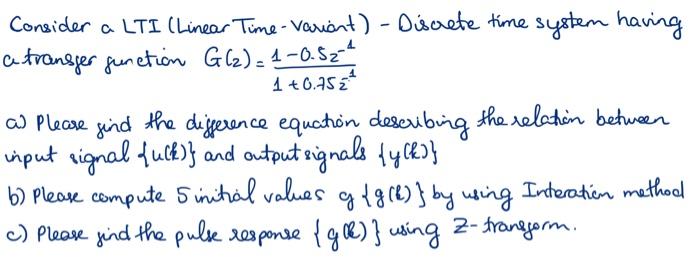 Consider a LTI (Linear Time-Variant) - Discrete time system having
a transfer function G(z) = 1 - 0.5z^-1 / 1 + 0.75z^-1
a) Please find the difference equation describing the relation between
input signal {u(k)} and output signals {y(k)}
b) Please compute 5 initial values of {g(k)} by using Interation method
c) Please find the pulse response {g(k)} using Z-transform.